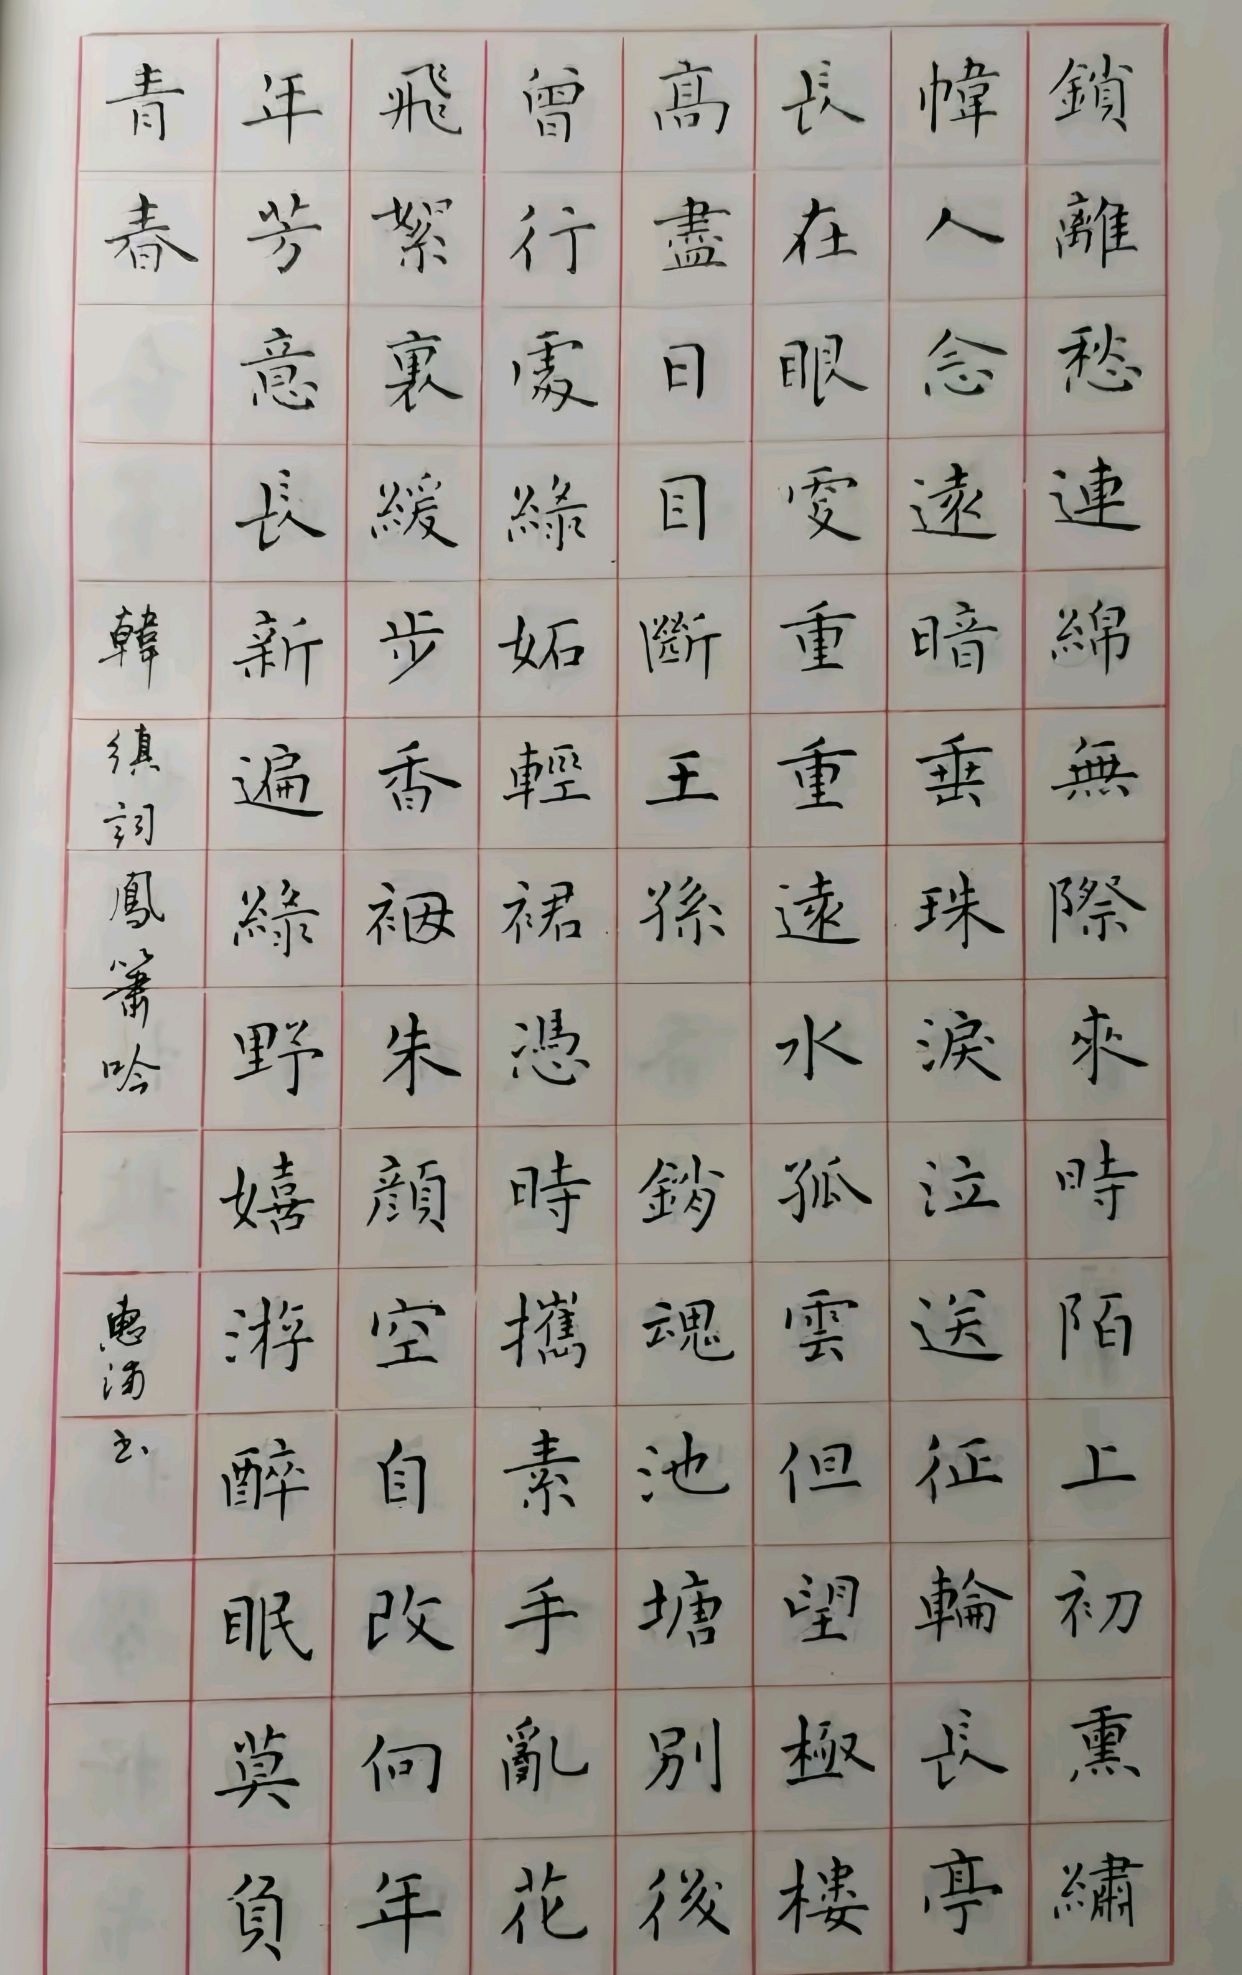 鎖離愁連綿無際來時陌上初熏繡
幃人念遠暗垂珠淚泣送征輪長亭
長在眼更重重遠水孤雲但望極樓
高盡日目斷王孫 銷魂池塘別後
曾行處綠妬輕裙憑時攜素手亂花
飛絮裏緩步香裀朱顏空自改向年
年芳意長新遍綠野嬉游醉眠莫負
青春 韓縝詞鳳簫吟 惠 书